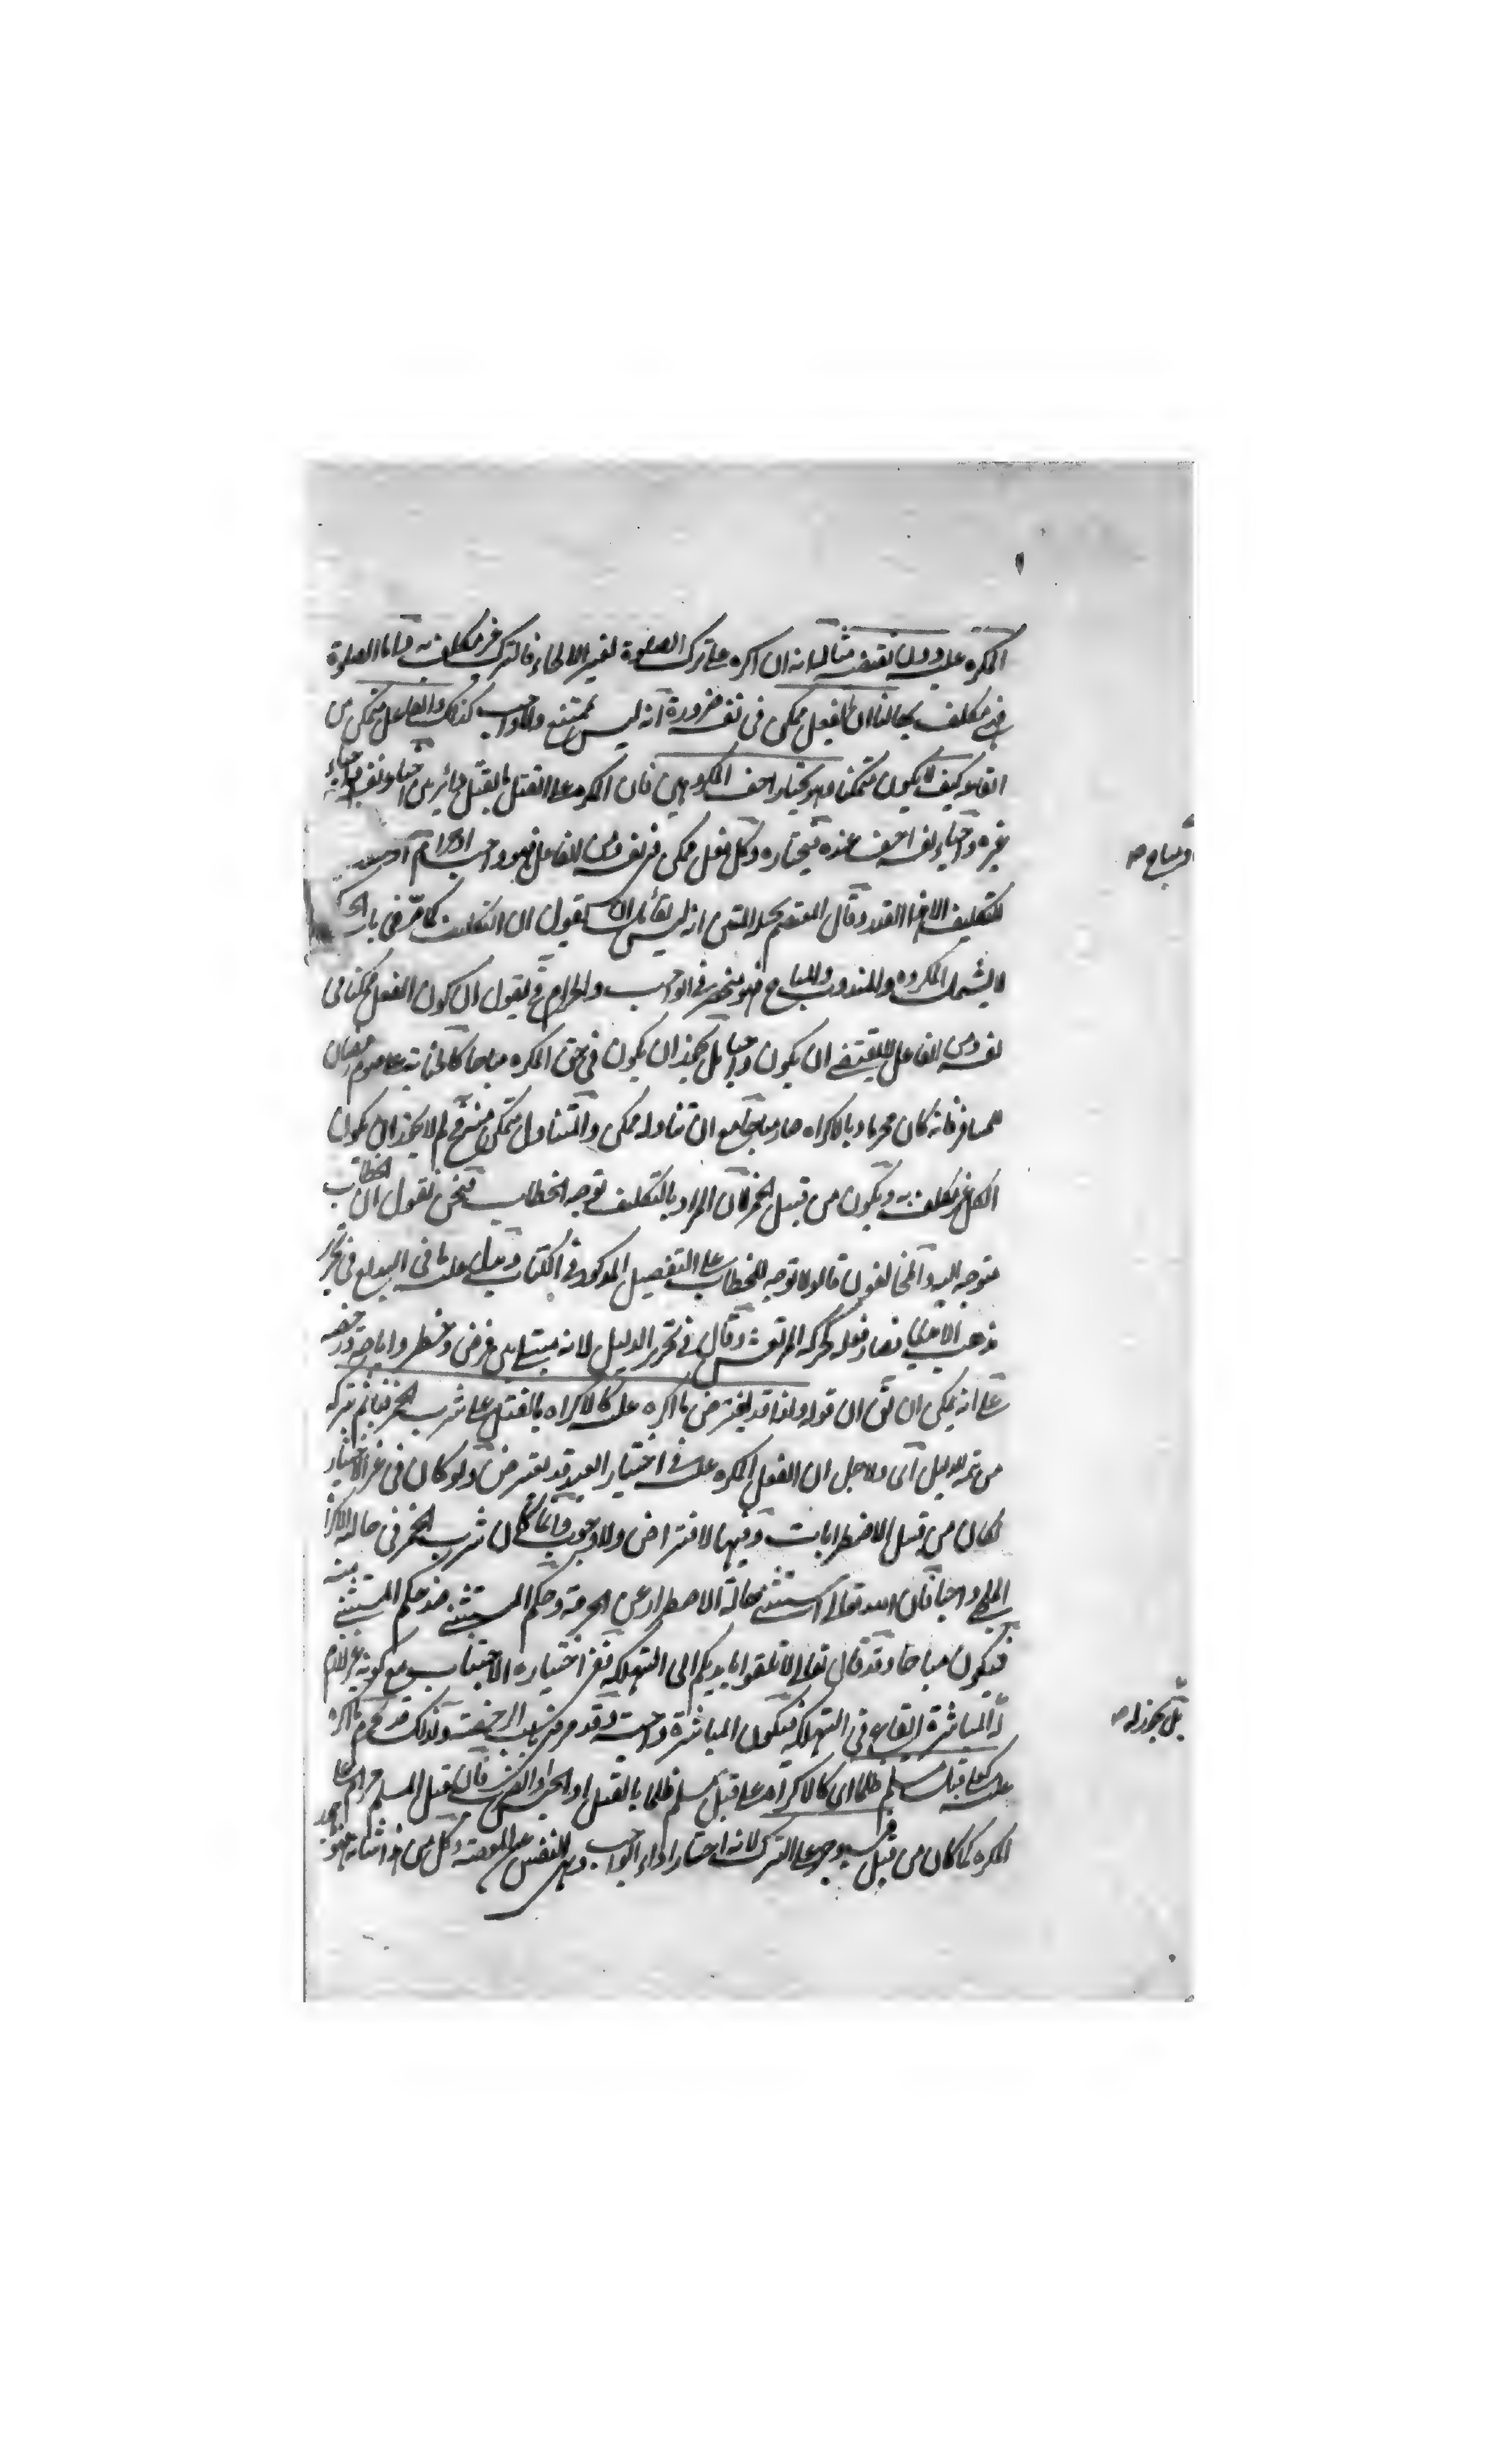 المكره عليه دون نقيضه مثاله انه ان اكره على ترك الصلوة لغير الالجاء فالترك غير مكلف به واما الصلوة
فهي مكلف بها لنا ان الفعل ممكن في نفسه ضرورة انه ليس بممتنع ولا واجب كذلك والفاعل متمكن من
ايقاعه كيف لا يكون متمكنا وهو يختار اخف المكروهين فان المكره على القتل بالقتل دائر بين احياء نفسه واحياء
غيره واحياء نفسه اخف عنده فيختاره وكل فعل ممكن في نفسه ومن الفاعل فهو واجب او حرام
للتكليف الا هذا القدر وقال المعتصم بحبل المتين انه ليس لقائل ان يقول ان التكليف كما مر في باب الحكم
لا يشمل المكروه والمندوب والمباح فهو ينحصر في الواجب والحرام فح نقول ان كون الفعل ممكنا في
نفسه ومن الفاعل لا يقتضي ان يكون واجبا بل يجوز ان يكون في حق المكره مباحا على صوم رمضان
للمسافر فانه كان محرما وبالاكراه صار مباحا مع ان تناوله ممكن والمتناول متمكن منه فح لم لا يجوز ان يكون
الكل غير مكلف به ويكون من قبيل الخمر لان المراد بالتكليف توجه الخطاب فنحن نقول ان الخطاب
متوجه اليه والمخالفون قالوا لا توجه للخطاب على التفصيل المذكور في الكتاب ويدل عليه ما في البديع في تحرير
مذهب فصار فعله كحركة المرتعش وقال في تحرير الدليل لانه مبتلى بين فرض وحظر واباحة ورخصة
على انه يمكن ان يق ان قوله ولذا قد يفترض ما اكره عليه كالاكراه بالقتل على شرب الخمر فيأثم بتركه
من تتمة الدليل اى ولاجل ان الفعل المكره عليه في اختيار العبد قد يفترض ولو كان في غير الاختيار
لكان من قبيل الاضطرابات وفيها لا افتراض ولا وجوب وانما كان شرب الخمر في حالة الاكراه
الملجئ واجبا فان الله تعالى استثنى حالة الاضطرار عن الحرمة وحكم المستثنى ضد حكم المستثنى منه
فيكون مباحا وقد قال تعالى لا تلقوا بايديكم الى التهلكة ففي اختياره الاجتناب مع كونه غير لازم
له المباشرة ايقاع في التهلكة فيكون المباشرة واجبة وقد مر في باب الرخصة ولذلك قد يحرم ما اكره
عليه كعلى قتل مسلم ظلما اى كالاكراه على قتل مسلم ظلما بالقتل او الحبس او الضرب فان قتل المسلم حرام على
المكره كما كان من قبل فيوجر على الترك لانه اختار اداء الواجب
او مباح صح
بل يجوز له صح